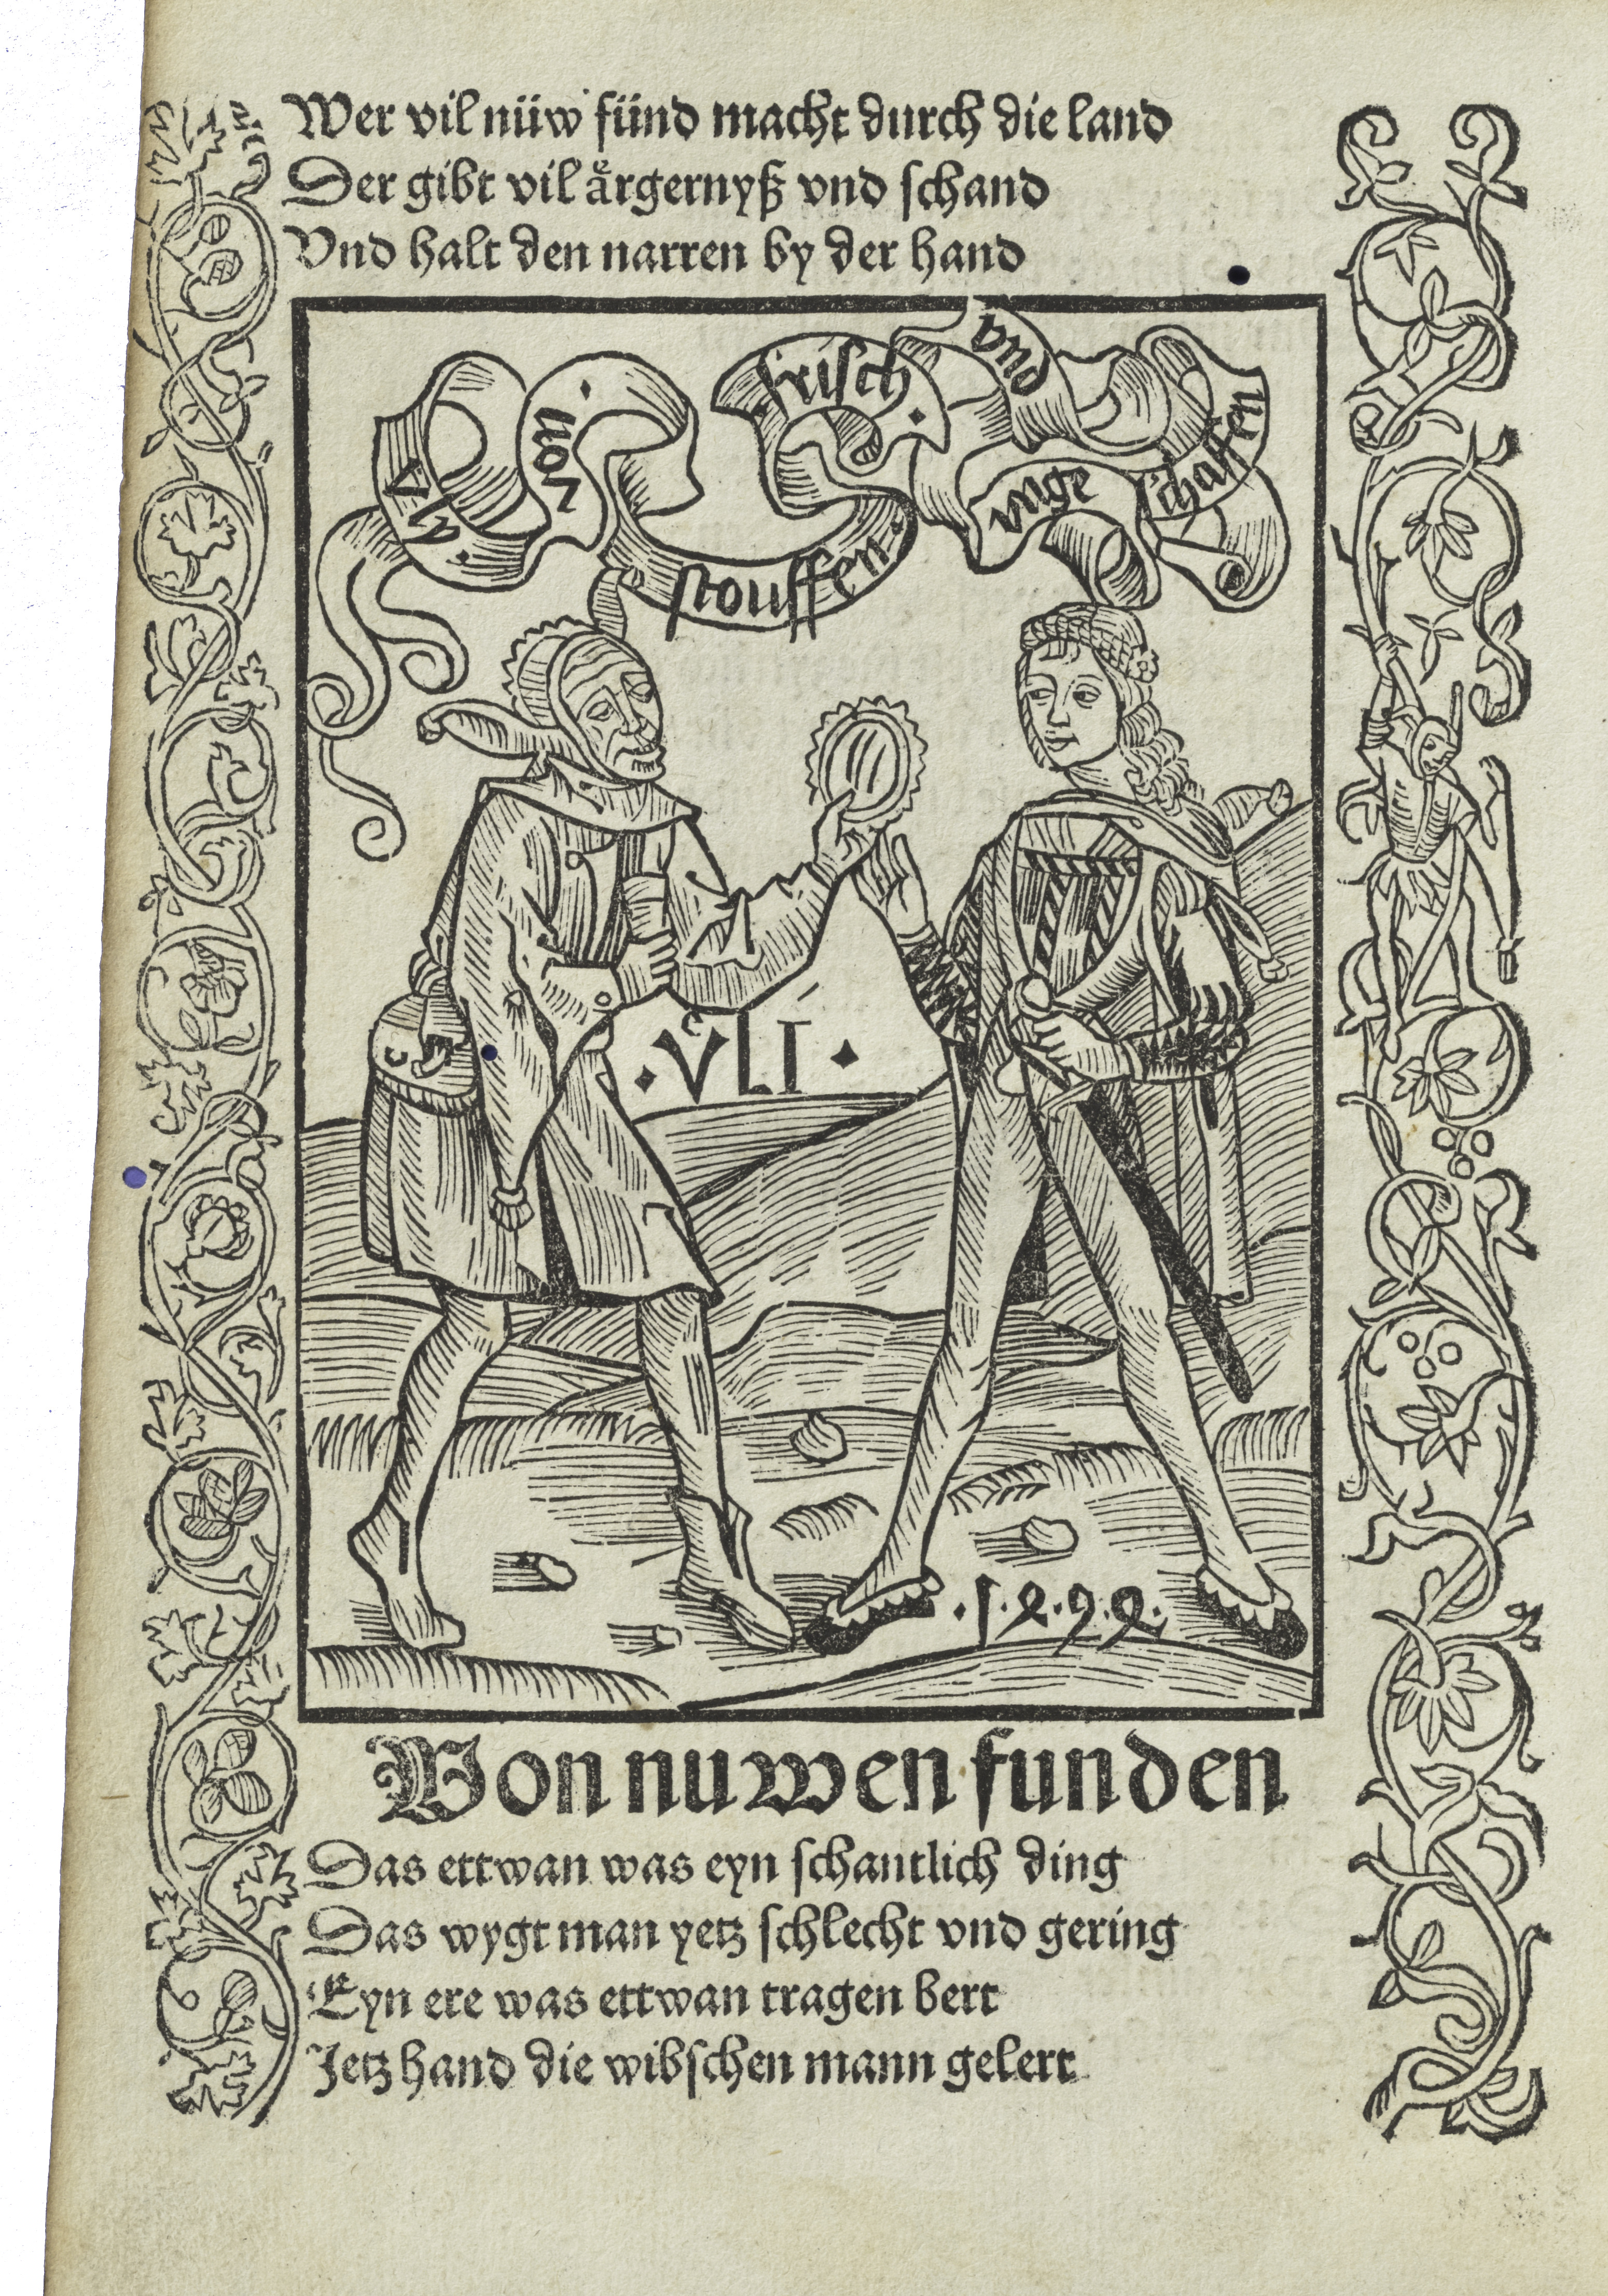 Wer vil nüw fünd macht durch die land
Der gibt vil aͤrgernyß vnd ſchand
Vnd halt den narren by der hand
vly.
von
ſtouffen.
friſch.
vnd
vnge
ſchaffen
.VLI.
.1.4.9.4.
Von nuwen funden
Das ettwan was eyn ſchantlich ding
Das wygt man yetz ſchlecht vnd gering
Eyn ere was ettwan tragen bert
Jetz hand die wibſchen mann gelert